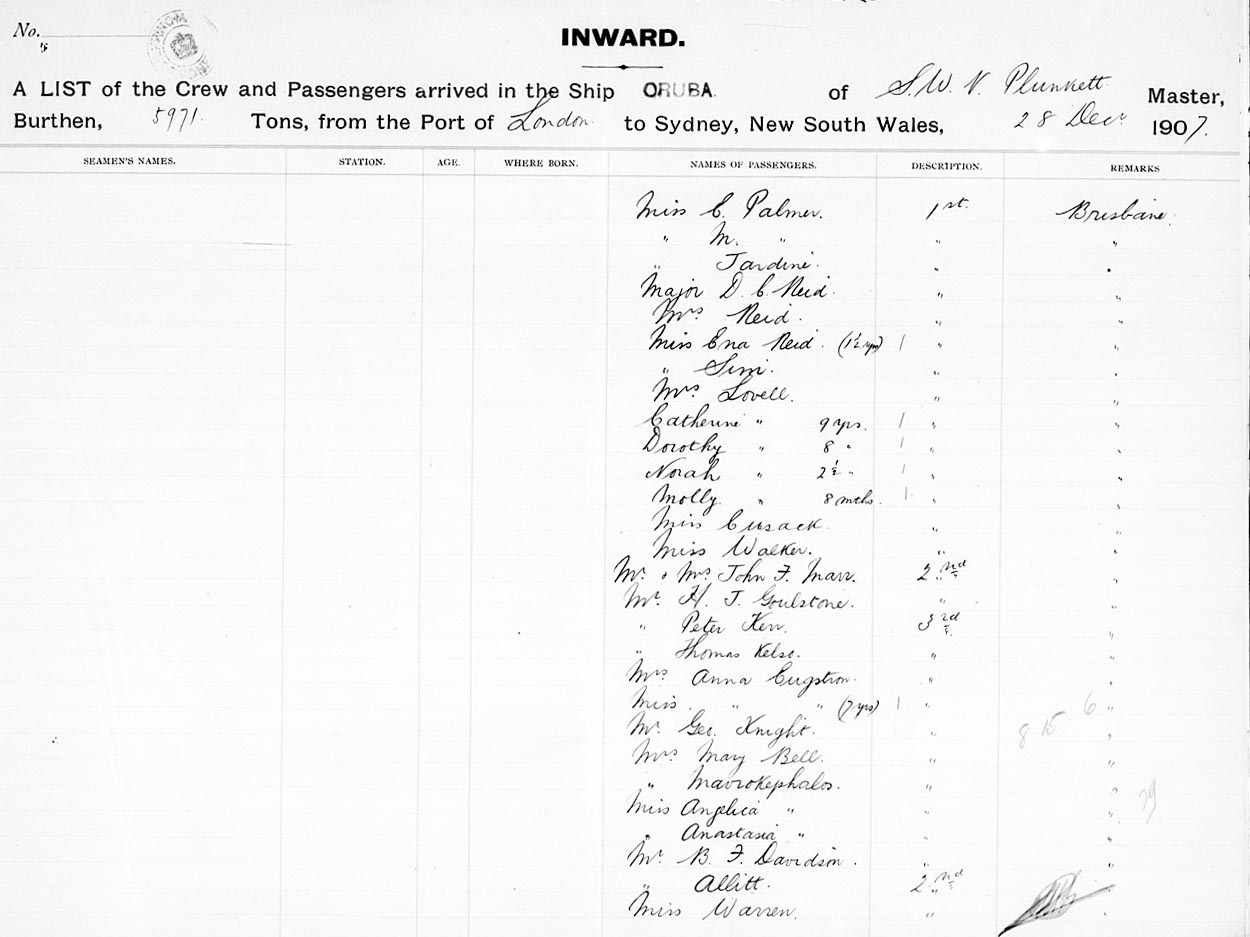 No.
INWARD.
A LIST of the Crew and Passengers arrived in the Ship ORUBA. of S. W. V. Plunkett Master,
Burthen, 5971. Tons, from the Port of London. to Sydney, New South Wales, 28 Decr 1907.
SEAMEN'S NAMES. STATION. AGE. WHERE BORN. NAMES OF PASSENGERS. DESCRIPTION. REMARKS
Miss C. Palmer. 1st. Brisbane.
" M. " " "
" Jardine. " "
Major D. C. Reid. " "
Mrs Reid. " "
Miss Ena Reid. (1½ yrs) 1 " "
" Sim. " "
Mrs Lovell. " "
Catherine " 9 yrs. 1 " "
Dorothy " 8 " 1 " "
Norah " 2½ " 1 " "
Molly " 8 mths. 1 " "
Miss Cusack. " "
Miss Walker. " "
Mr & Mrs John F. Marr. 2nd "
Mr. H. J. Goulstone. " "
" Peter Kerr. 3rd "
" Thomas Kelso. " "
Mrs Anna Engstron. " "
Miss " " (7 yrs) 1 " "
Mr. Geo. Knight. " 8 15 6 "
Mrs Mary Bell. " "
" Mavrokephalos. " "
Miss Angelica " " "
" Anastasia " " "
Mr B. F. Davidson. " "
" Allitt. 2nd
Miss Warren. " "